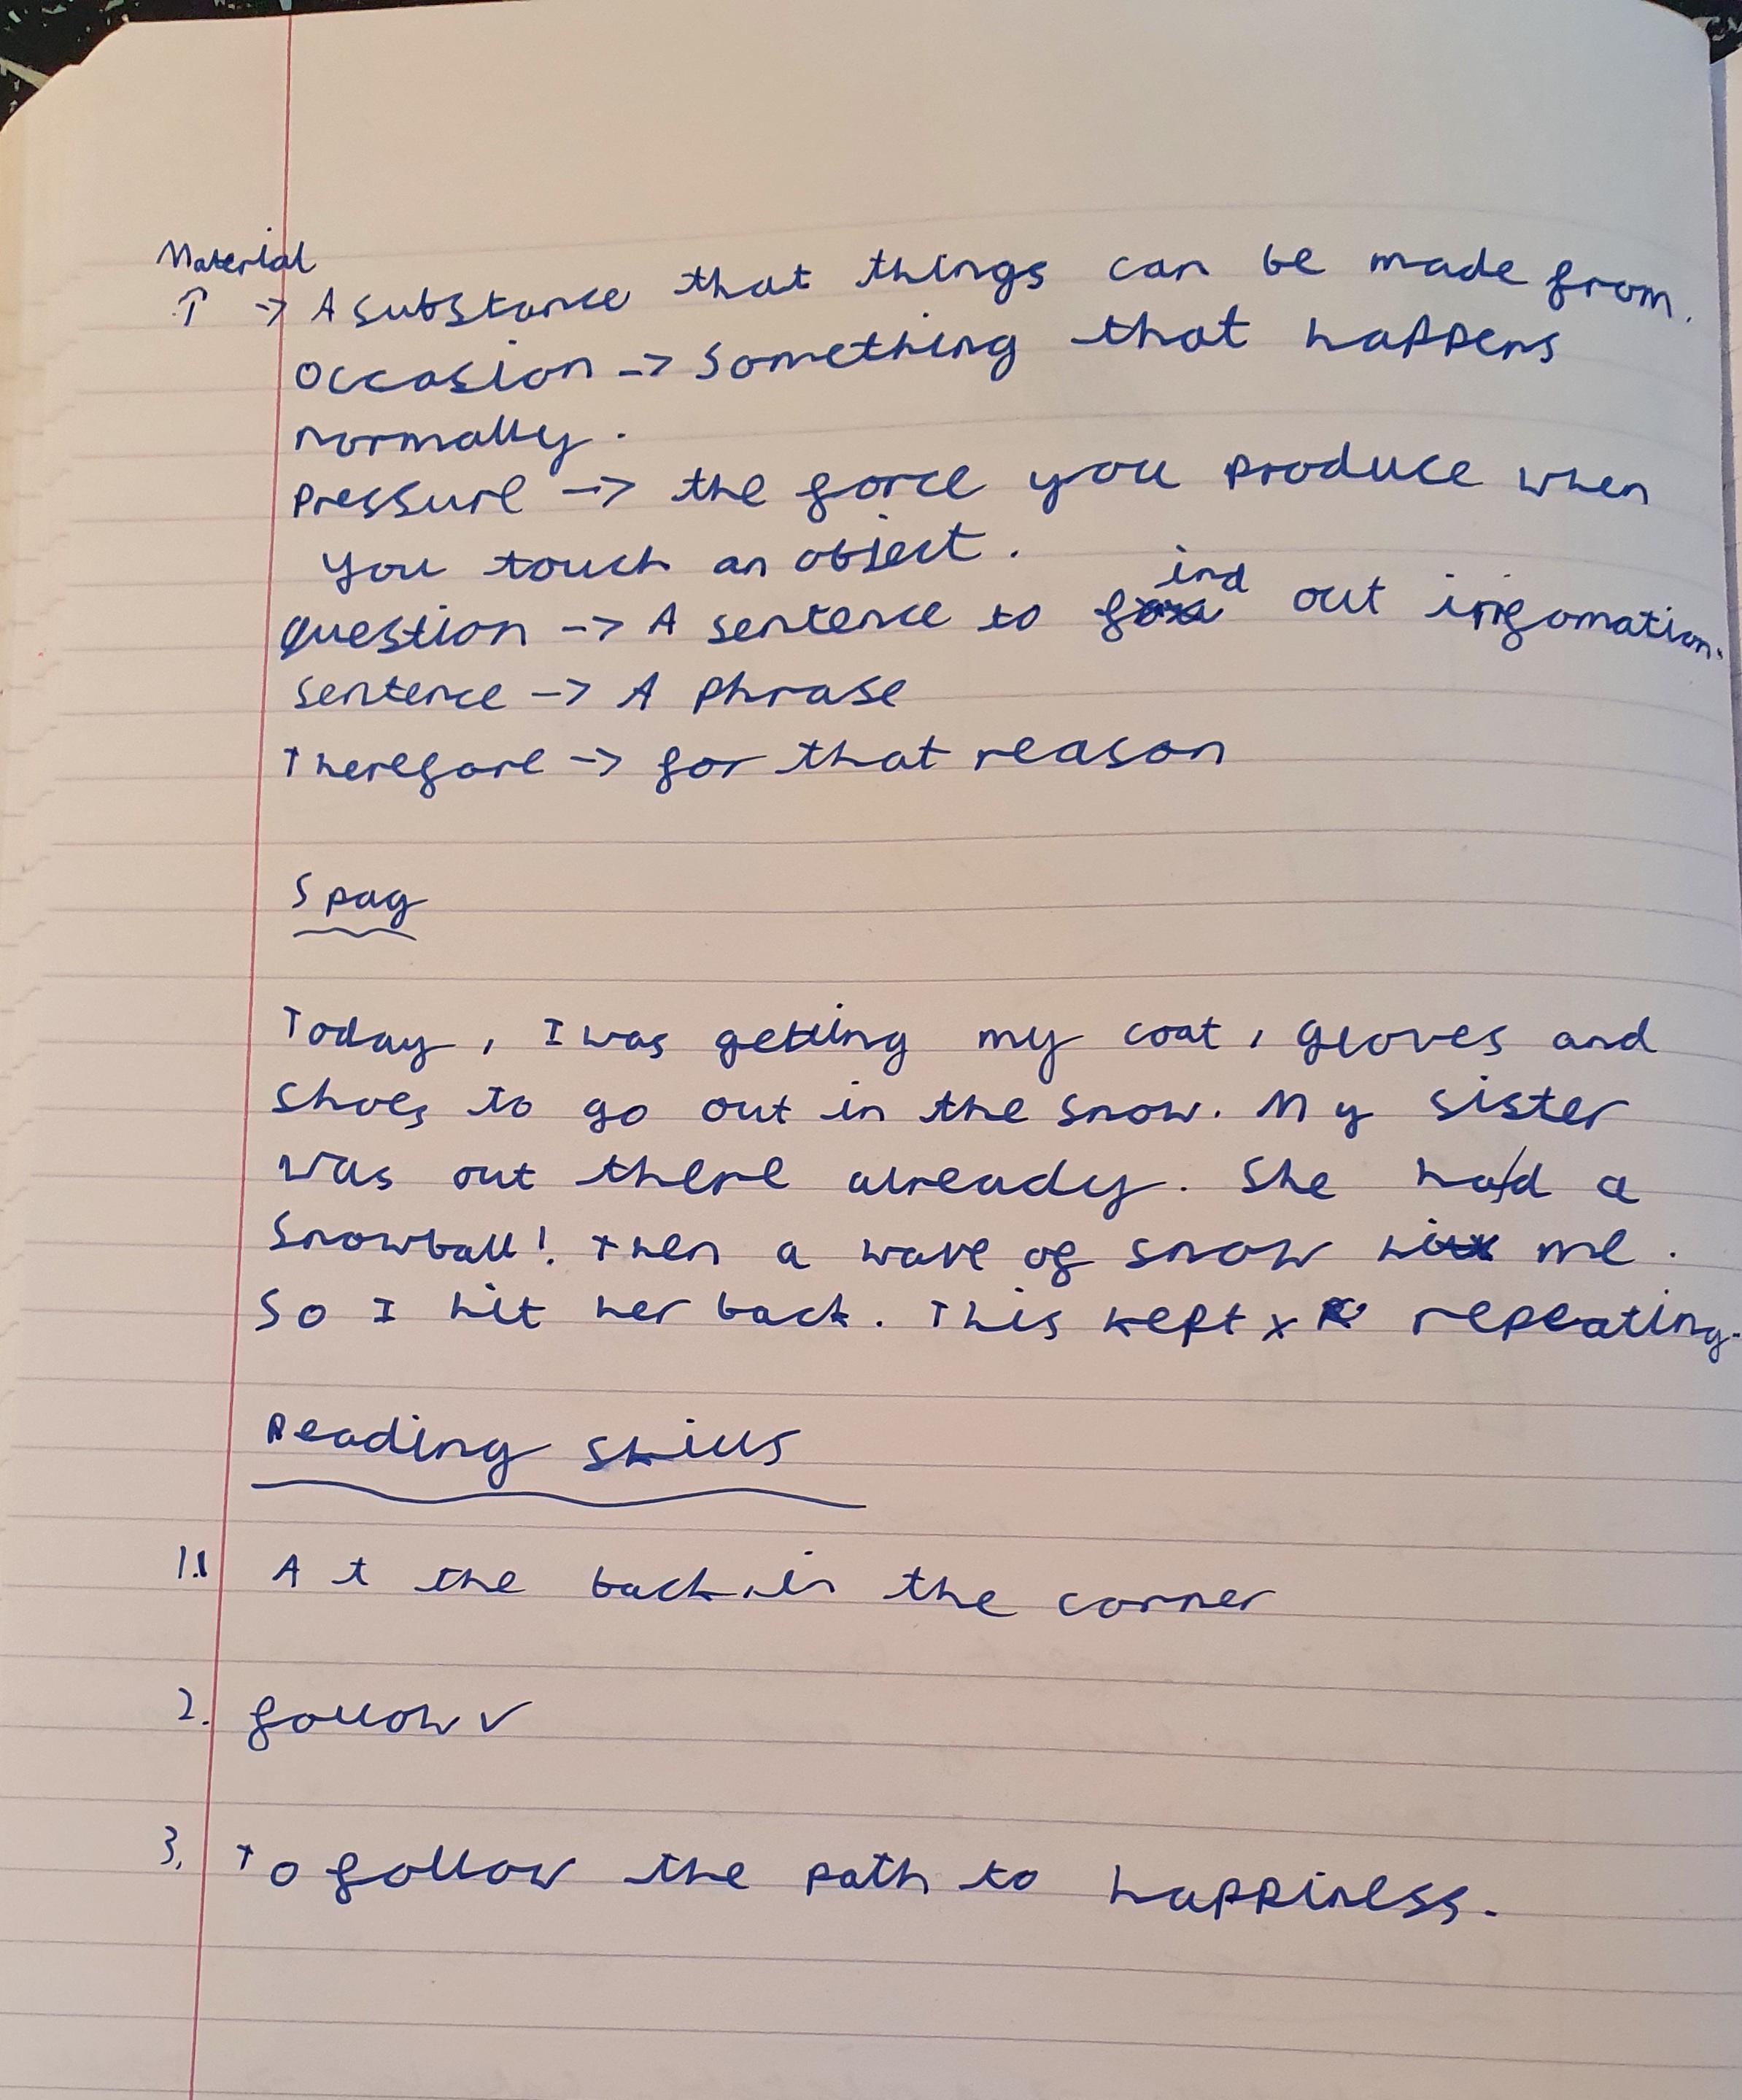 Material
↑ -> A substance that things can be made from.
Occasion -> Something that happens
normally.
Pressure -> the force you produce when
you touch an object.
question -> A sentence to find out infomation.
sentence -> A phrase
Therefore -> for that reason
Spag
Today, I was getting my coat, gloves and
shoes to go out in the snow. My sister
was out there already. She had a
Snowball! Then a wave of snow hit me.
So I hit her back. This kept repeating.
Reading skills
1. At the back, in the corner
2. follow ✓
3. To follow the path to happiness.